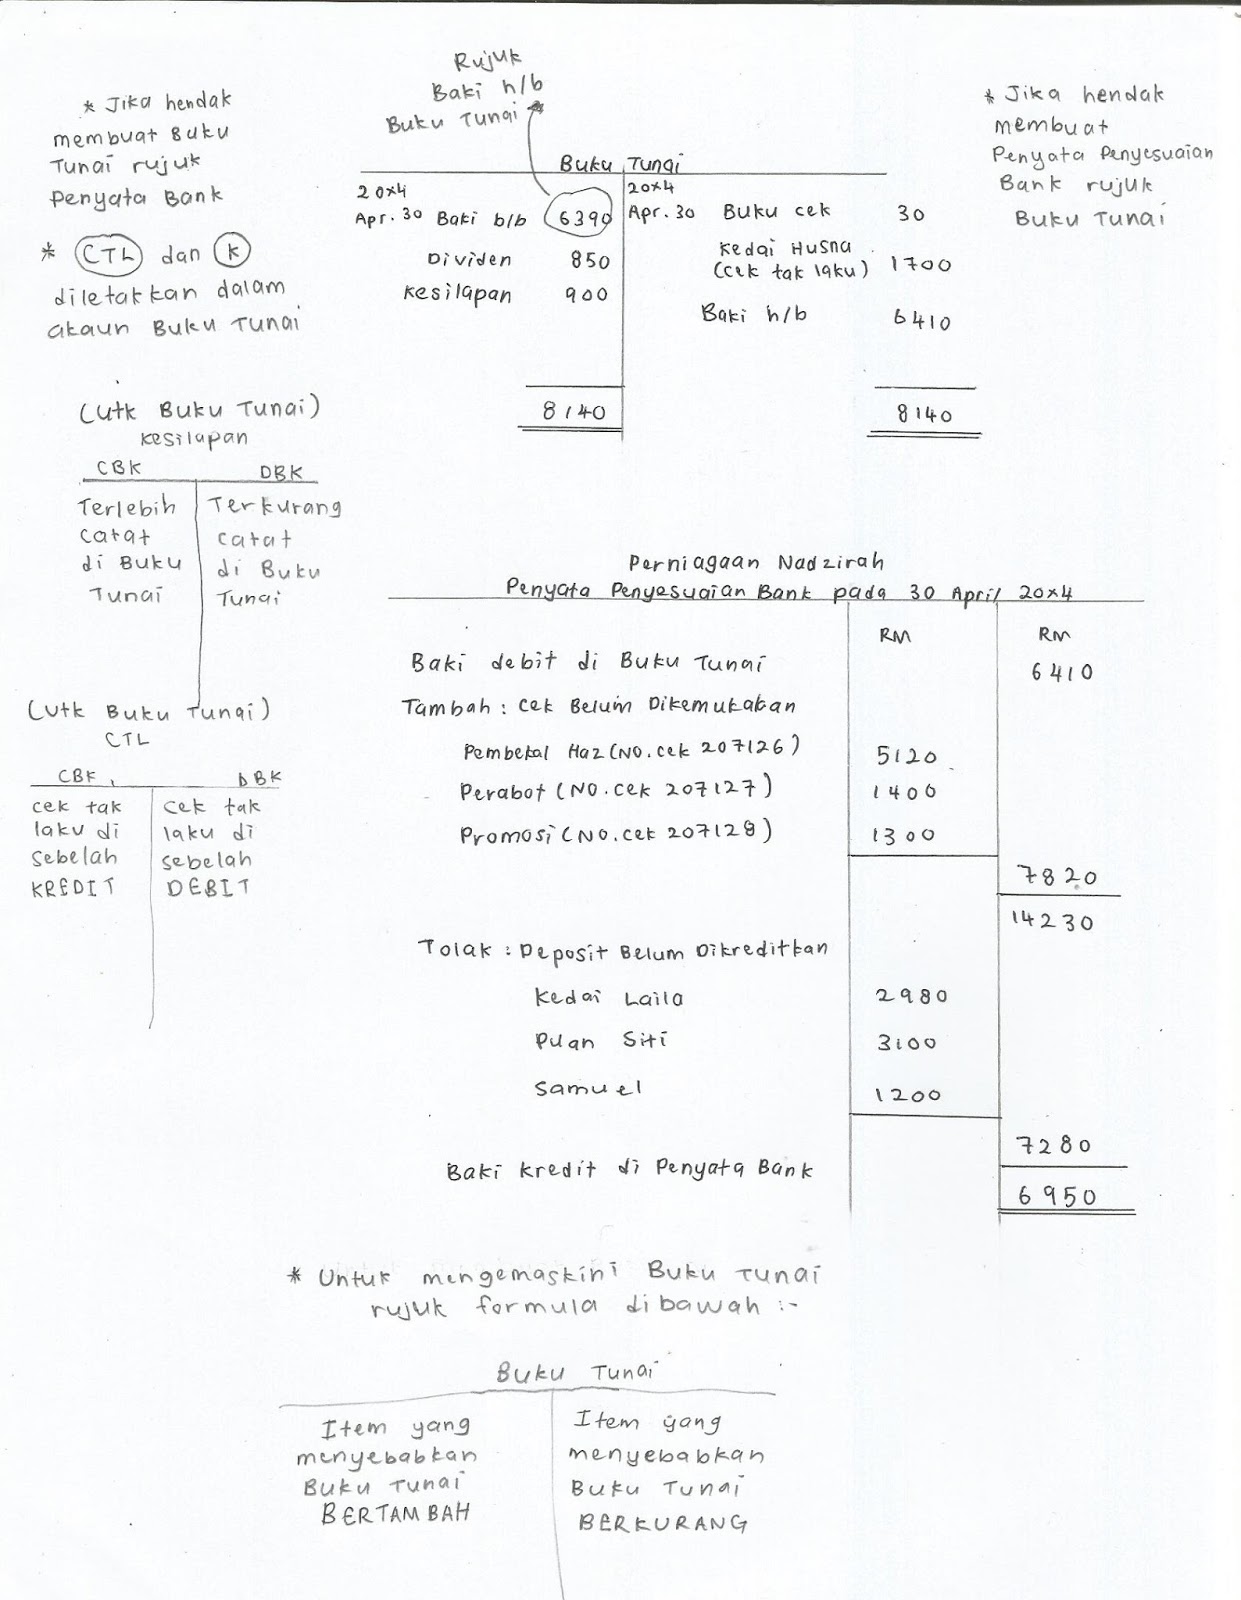 Rujuk
Baki h/b
Buku Tunai
* Jika hendak
membuat Buku
Tunai rujuk
Penyata Bank
* CTL dan K
diletakkan dalam
akaun Buku Tunai
* Jika hendak
membuat
Penyata Penyesuaian
Bank rujuk
Buku Tunai
Buku Tunai
20x4 20x4
Apr. 30 Baki b/b 6390 Apr. 30 Buku cek 30
Dividen 850 Kedai Husna
(cek tak laku) 1700
Kesilapan 900
Baki h/b 6410
8140 8140
(Utk Buku Tunai)
Kesilapan
CBK DBK
Terlebih Terkurang
catat catat
di Buku di Buku
Tunai Tunai
(Utk Buku Tunai)
CTL
CBK DBK
cek tak cek tak
laku di laku di
sebelah sebelah
KREDIT DEBIT
Perniagaan Nadzirah
Penyata Penyesuaian Bank pada 30 April 20x4
RM RM
Baki debit di Buku Tunai 6410
Tambah : Cek Belum Dikemukakan
Pembekal Haz (NO. cek 207126) 5120
Perabot (NO. cek 207127) 1400
Promosi (NO. cek 207128) 1300
7820
14230
Tolak : Deposit Belum Dikreditkan
Kedai Laila 2980
Puan Siti 3100
Samuel 1200
7280
Baki kredit di Penyata Bank
6950
* Untuk mengemaskini Buku Tunai
rujuk formula dibawah :-
Buku Tunai
Item yang Item yang
menyebabkan menyebabkan
Buku Tunai Buku Tunai
BERTAMBAH BERKURANG